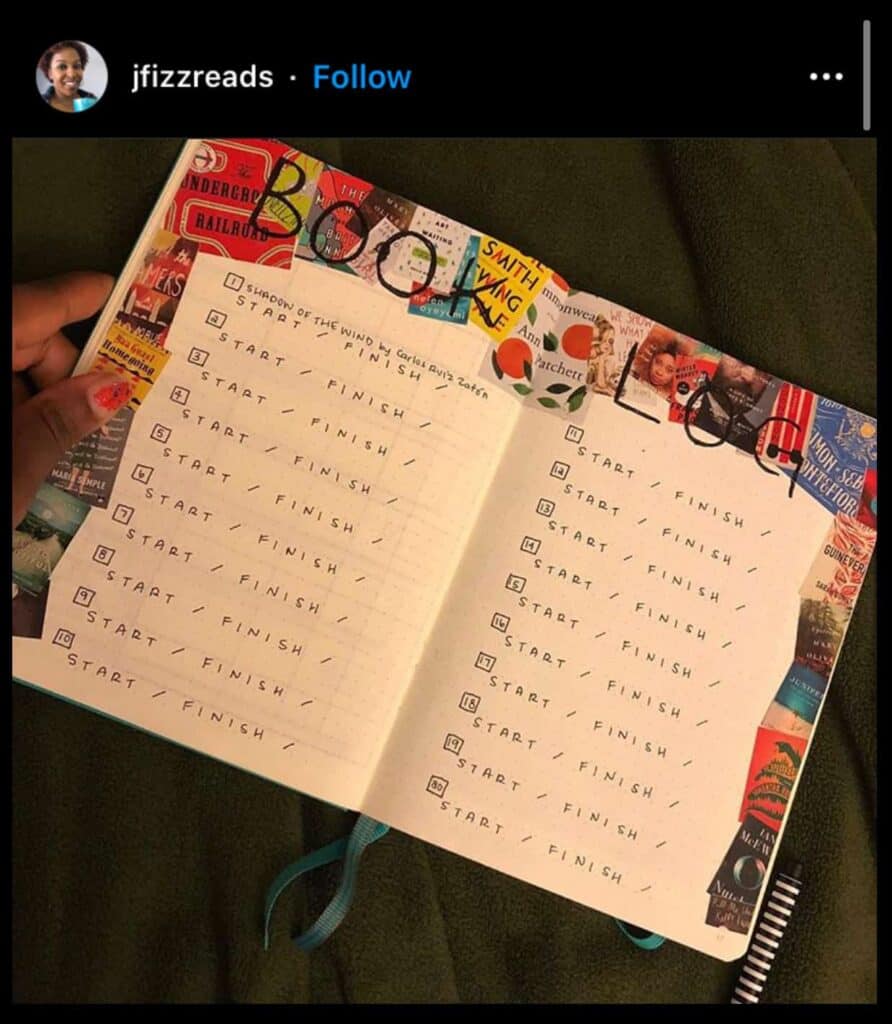 jfizzreads · Follow
The
UNDERGRO
RAILROAD
BOOK LOG
THE
ART
WAITING
helen
oyeyemi
SMITH
WING
mmonwea
Ann
Patchett
WE SHOW
WHAT
the
MERS
Homegoing
MARIA SEMPLE
1 SHADOW OF THE WIND by Carlos Ruiz Zafón
START / FINISH /
2
START / FINISH /
3
START / FINISH /
4
START / FINISH /
5
START / FINISH /
6
START / FINISH /
7
START / FINISH /
8
START / FINISH /
9
START / FINISH /
10
START / FINISH /
11
START / FINISH /
12
START / FINISH /
13
START / FINISH /
14
START / FINISH /
15
START / FINISH /
16
START / FINISH /
17
START / FINISH /
18
START / FINISH /
19
START / FINISH /
20
START / FINISH /
IMON SEB
ONTEFIOR
GUINEVER
JUNIPER
IAN
McEW